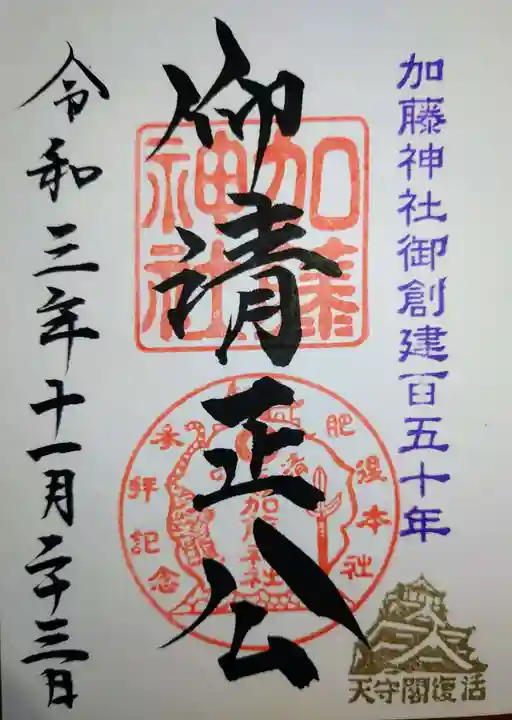 加藤神社御創建百五十年
天守閣復活
仰清正公
加藤神社
肥後本社
加藤神社
参拝記念
令和三年十一月二十三日